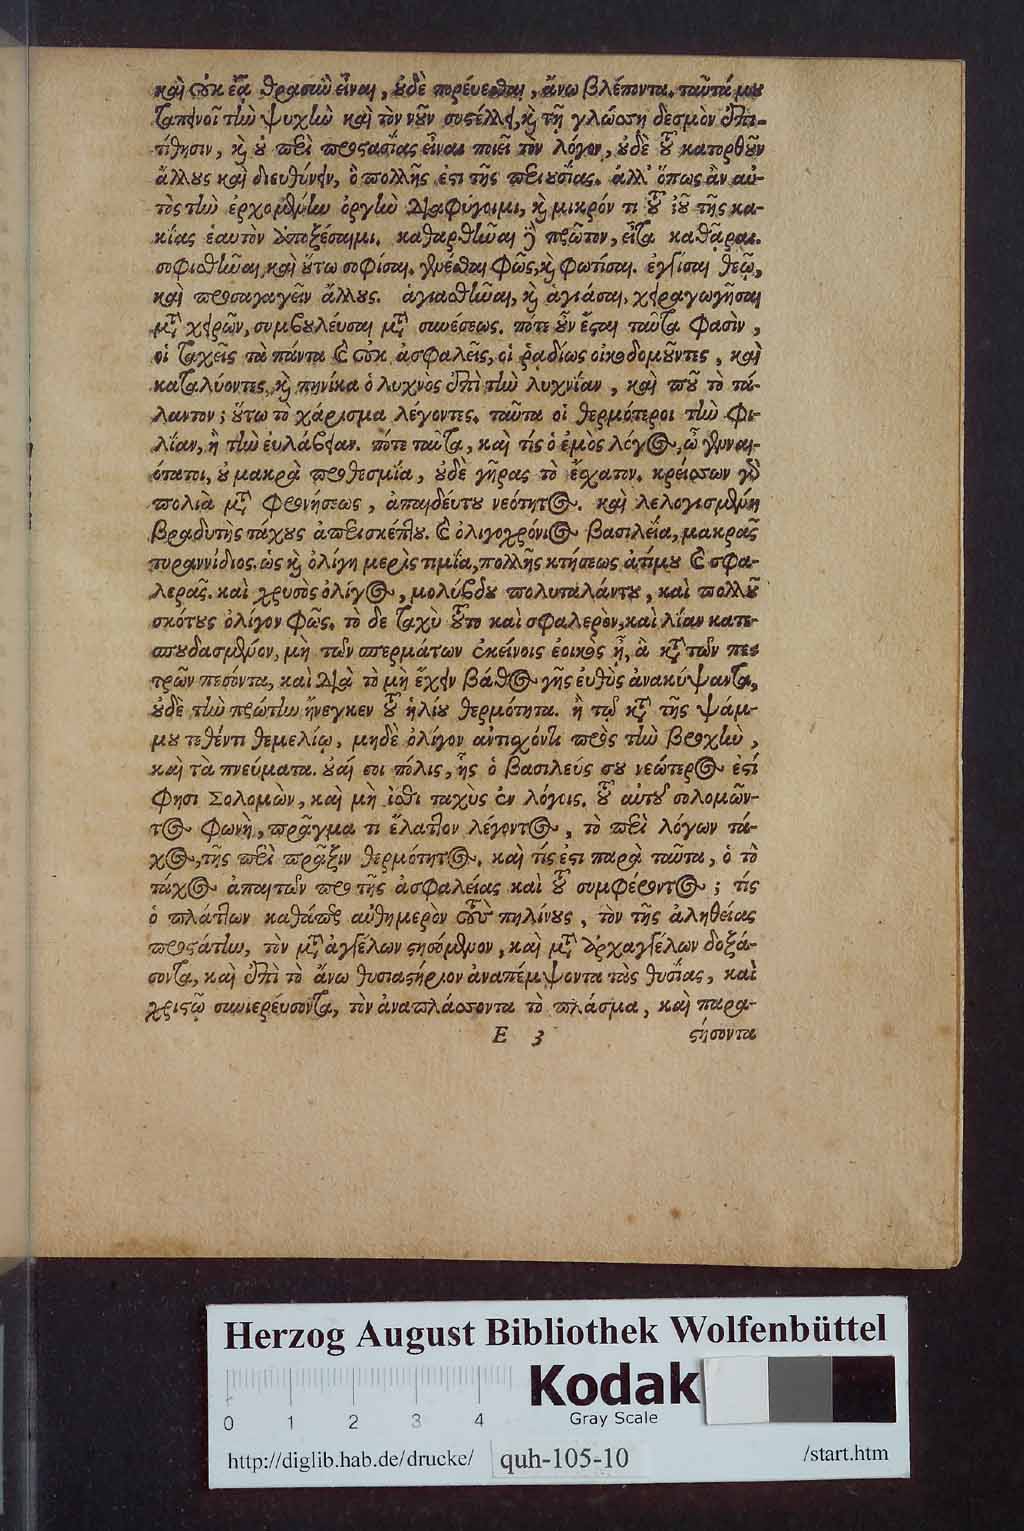 καὶ οὐκ ἐᾷ θρασὺν εἶναι, οὐδὲ πορεύεσθαι, ἄνω βλέποντα. ταῦτά μου
ταπεινοῖ τὴν ψυχὴν καὶ τὸν νοῦν συστέλλει, καὶ τῇ γλώσσῃ δεσμὸν ἐπι-
τίθησιν, καὶ οὐ περὶ προστασίας εἶναι ποιεῖ τὸν λόγον, οὐδὲ τοῦ κατορθοῦν
ἄλλους καὶ διευθύνειν, ὃ πολλῆς ἐστι τῆς περιουσίας. ἀλλ' ὅπως ἂν αὐ-
τὸς τὴν ἐρχομένην ὀργὴν διαφύγοιμι, καὶ μικρόν τι τοῦ ἰοῦ τῆς κα-
κίας ἑαυτὸν ἀποξέσαιμι. καθαρθῆναι δεῖ πρῶτον, εἶτα καθᾶραι.
σοφισθῆναι, καὶ οὕτω σοφίσαι. γενέσθαι φῶς, καὶ φωτίσαι. ἐγγίσαι θεῷ,
καὶ προσαγαγεῖν ἄλλους. ἁγιασθῆναι, καὶ ἁγιάσαι. χειραγωγῆσαι
μετὰ χειρῶν, συμβουλεύσαι μετὰ συνέσεως. πότε οὖν ἔσται ταῦτα φασὶν,
οἱ ταχεῖς τὰ πάντα καὶ οὐκ ἀσφαλεῖς, οἱ ῥαδίως οἰκοδομοῦντες, καὶ
καταλύοντες, καὶ πηνίκα ὁ λυχνὸς ἐπὶ τὴν λυχνίαν, καὶ ποῦ τὸ τά-
λαντον; οὕτω τὸ χάρισμα λέγοντες. ταῦτα οἱ θερμότεροι τὴν φι-
λίαν, ἢ τὴν εὐλάβειαν. πότε ταῦτα, καὶ τίς ὁ ἐμὸς λόγος, ὦ γενναι-
ότατοι, οὐ μακρὰ προθεσμία, οὐδὲ γῆρας τὸ ἔσχατον. κρείσσων γὰρ
πολιὰ μετὰ φρονήσεως, ἀπαιδεύτου νεότητος. καὶ λελογισμένη
βραδυτὴς τάχους ἀπερισκέπτου. καὶ ὀλιγοχρόνιος βασιλεία, μακρᾶς
τυραννίδιος. ὡς καὶ ὀλίγη μερὶς τιμία, πολλῆς κτήσεως ἀτίμου καὶ σφα-
λερᾶς. καὶ χρυσὸς ὀλίγος, μολύβδου πολυταλάντου, καὶ πολλοῦ
σκότους ὀλίγον φῶς. τὸ δε ταχὺ τοῦτο καὶ σφαλερὸν, καὶ λίαν κατε-
σπουδασμένον, μὴ τῶν σπερμάτων ἐκείνοις ἐοικὸς ᾖ, ἃ κατὰ τῶν πε-
τρῶν πεσόντα, καὶ διὰ τὸ μὴ ἔχειν βάθος γῆς εὐθὺς ἀνακύψαντα,
οὐδὲ τὴν πρώτην ἤνεγκεν τοῦ ἡλίου θερμότητα. ἢ τῷ κατὰ τῆς ψάμ-
μου τεθέντι θεμελίῳ, μηδὲ ὀλίγον ἀντισχόντι πρὸς τὴν βροχὴν,
καὶ τὰ πνεύματα. οὐαί σοι πόλις, ἧς ὁ βασιλεύς σου νεώτερος ἐστί
φησι Σολομὼν, καὶ μὴ ἴσθι ταχὺς ἐν λόγοις. τοῦ αὐτοῦ σολομῶν-
τος φωνὴ, πρᾶγμα τι ἔλαττον λέγοντος, τὸ περὶ λόγων τά-
χος, τῆς περὶ πρᾶξιν θερμότητος. καὶ τίς ἐστι παρὰ ταῦτα, ὁ τὸ
τάχος ἀπαιτῶν πρὸ τῆς ἀσφαλείας καὶ τοῦ συμφέροντος; τίς
ὁ πλάττων καθάπερ αὐθημερὸν τοὺς πηλίνους, τὸν τῆς ἀληθείας
προστάτην, τὸν μετὰ ἀγγέλων στησόμενον, καὶ μετὰ ἀρχαγγέλων δοξά-
σοντα, καὶ ἐπὶ τὸ ἄνω θυσιαστήριον ἀναπέμψοντα τὰς θυσίας, καὶ
χριστῷ συνιερεύσοντα, τὸν ἀναπλάσσοντα τὸ πλάσμα, καὶ παρα-
E 3 στήσοντα
Herzog August Bibliothek Wolfenbüttel
Kodak
Gray Scale
0 1 2 3 4
http://diglib.hab.de/drucke/ quh-105-10 /start.htm